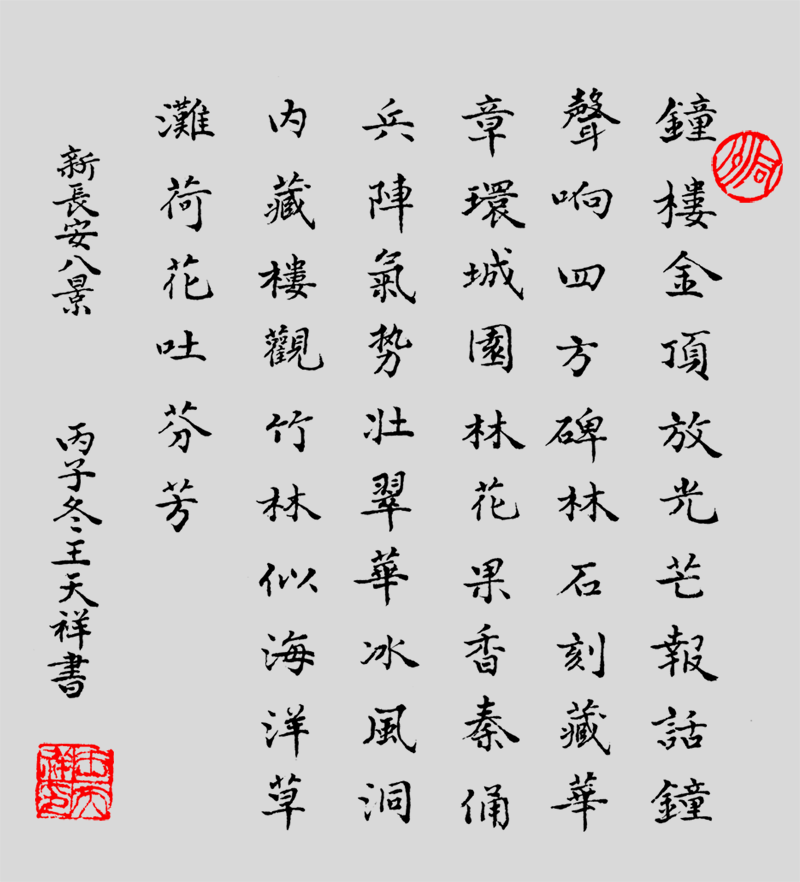 鐘樓金頂放光芒報話鐘
聲响四方碑林石刻藏華
章環城園林花果香秦俑
兵陣氣势壯翠華冰風洞
内藏樓觀竹林似海洋草
灘荷花吐芬芳
新長安八景
丙子冬王天祥書